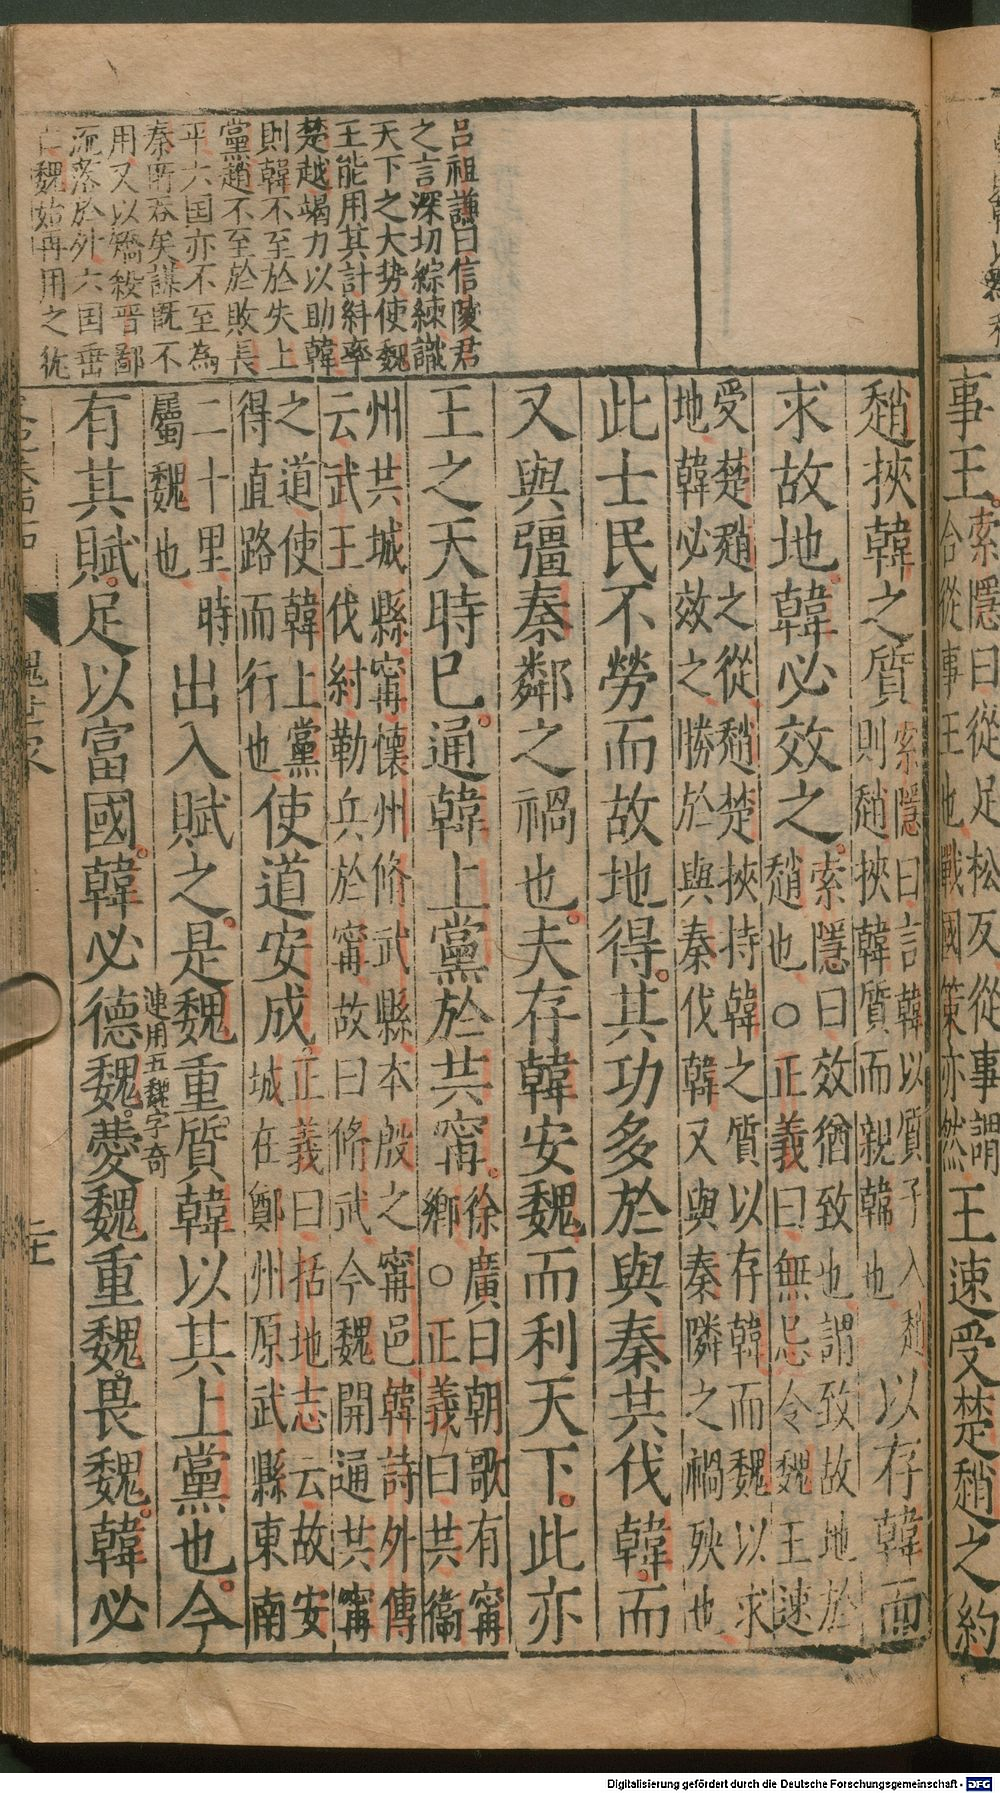 事王索隱曰從足松反從事謂
合從事王也戰國策亦然王速受楚趙之約
趙挾韓之質索隱曰言韓以質子入趙
則趙挾韓質而親韓也以存韓而
求故地韓必效之索隱曰效猶致也謂致故地於
趙也○正義曰無忌令魏王速
受楚趙之從趙楚挾持韓之質以存韓而魏以求
地韓必效之勝於與秦伐韓又與秦隣之禍殃也
此士民不勞而故地得其功多於與秦共伐韓而
又與彊秦鄰之禍也夫存韓安魏而利天下此亦
王之天時已通韓上黨於共甯徐廣曰朝歌有甯
鄉○正義曰共衞
州共城縣甯懷州脩武縣本殷之甯邑韓詩外傳
云武王伐紂勒兵於甯故曰脩武今魏開通共甯
之道使韓上黨
得直路而行也使道安成正義曰括地志云故安
城在鄭州原武縣東南
二十里時
屬魏也出入賦之是魏重質韓以其上黨也今
連用五魏字奇
有其賦足以富國韓必德魏愛魏重魏畏魏韓必
呂祖謙曰信陵君
之言深切綜練識
天下之大势使魏
王能用其計糾率
楚越竭力以助韓
則韓不至於失上
黨趙不至於敗長
平六国亦不至為
秦所吞矣謀既不
用又以矯殺晋鄙
流落於外六国垂
亡魏始再用之從
魏世家
Digitalisierung gefördert durch die Deutsche Forschungsgemeinschaft - DFG